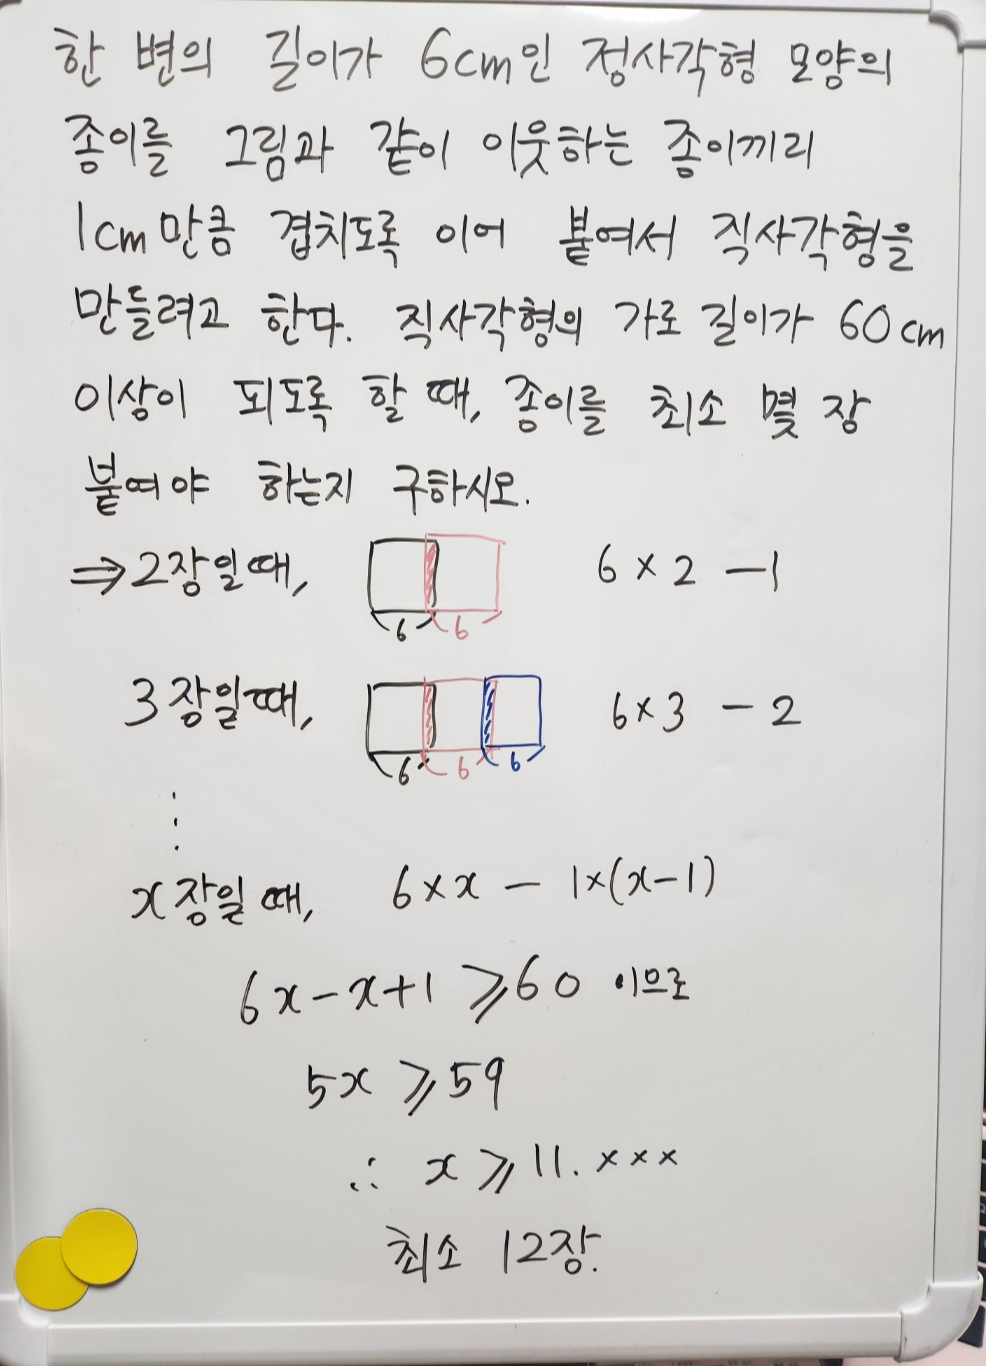 한 변의 길이가 6cm인 정사각형 모양의
종이를 그림과 같이 이웃하는 종이끼리
1cm만큼 겹치도록 이어 붙여서 직사각형을
만들려고 한다. 직사각형의 가로 길이가 60cm
이상이 되도록 할 때, 종이를 최소 몇 장
붙여야 하는지 구하시오.
⇒ 2장일때, 6 6 6 × 2 - 1
3장일때, 6 6 6 6×3 - 2
⋮
x장일때, 6×x - 1×(x-1)
6x-x+1 ⩾ 60 이므로
5x ⩾ 59
∴ x ⩾ 11.×××
최소 12장.